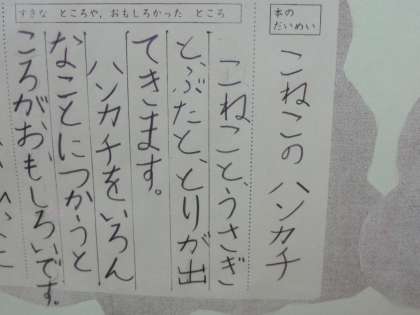 本の
だいめい
こねこの ハンカチ
すきな ところや、おもしろかった ところ
こねこと、うさぎ
と、ぶたと、とりが出
てきます。
ハンカチをいろん
なことにつかうと
ころがおもしろいです。